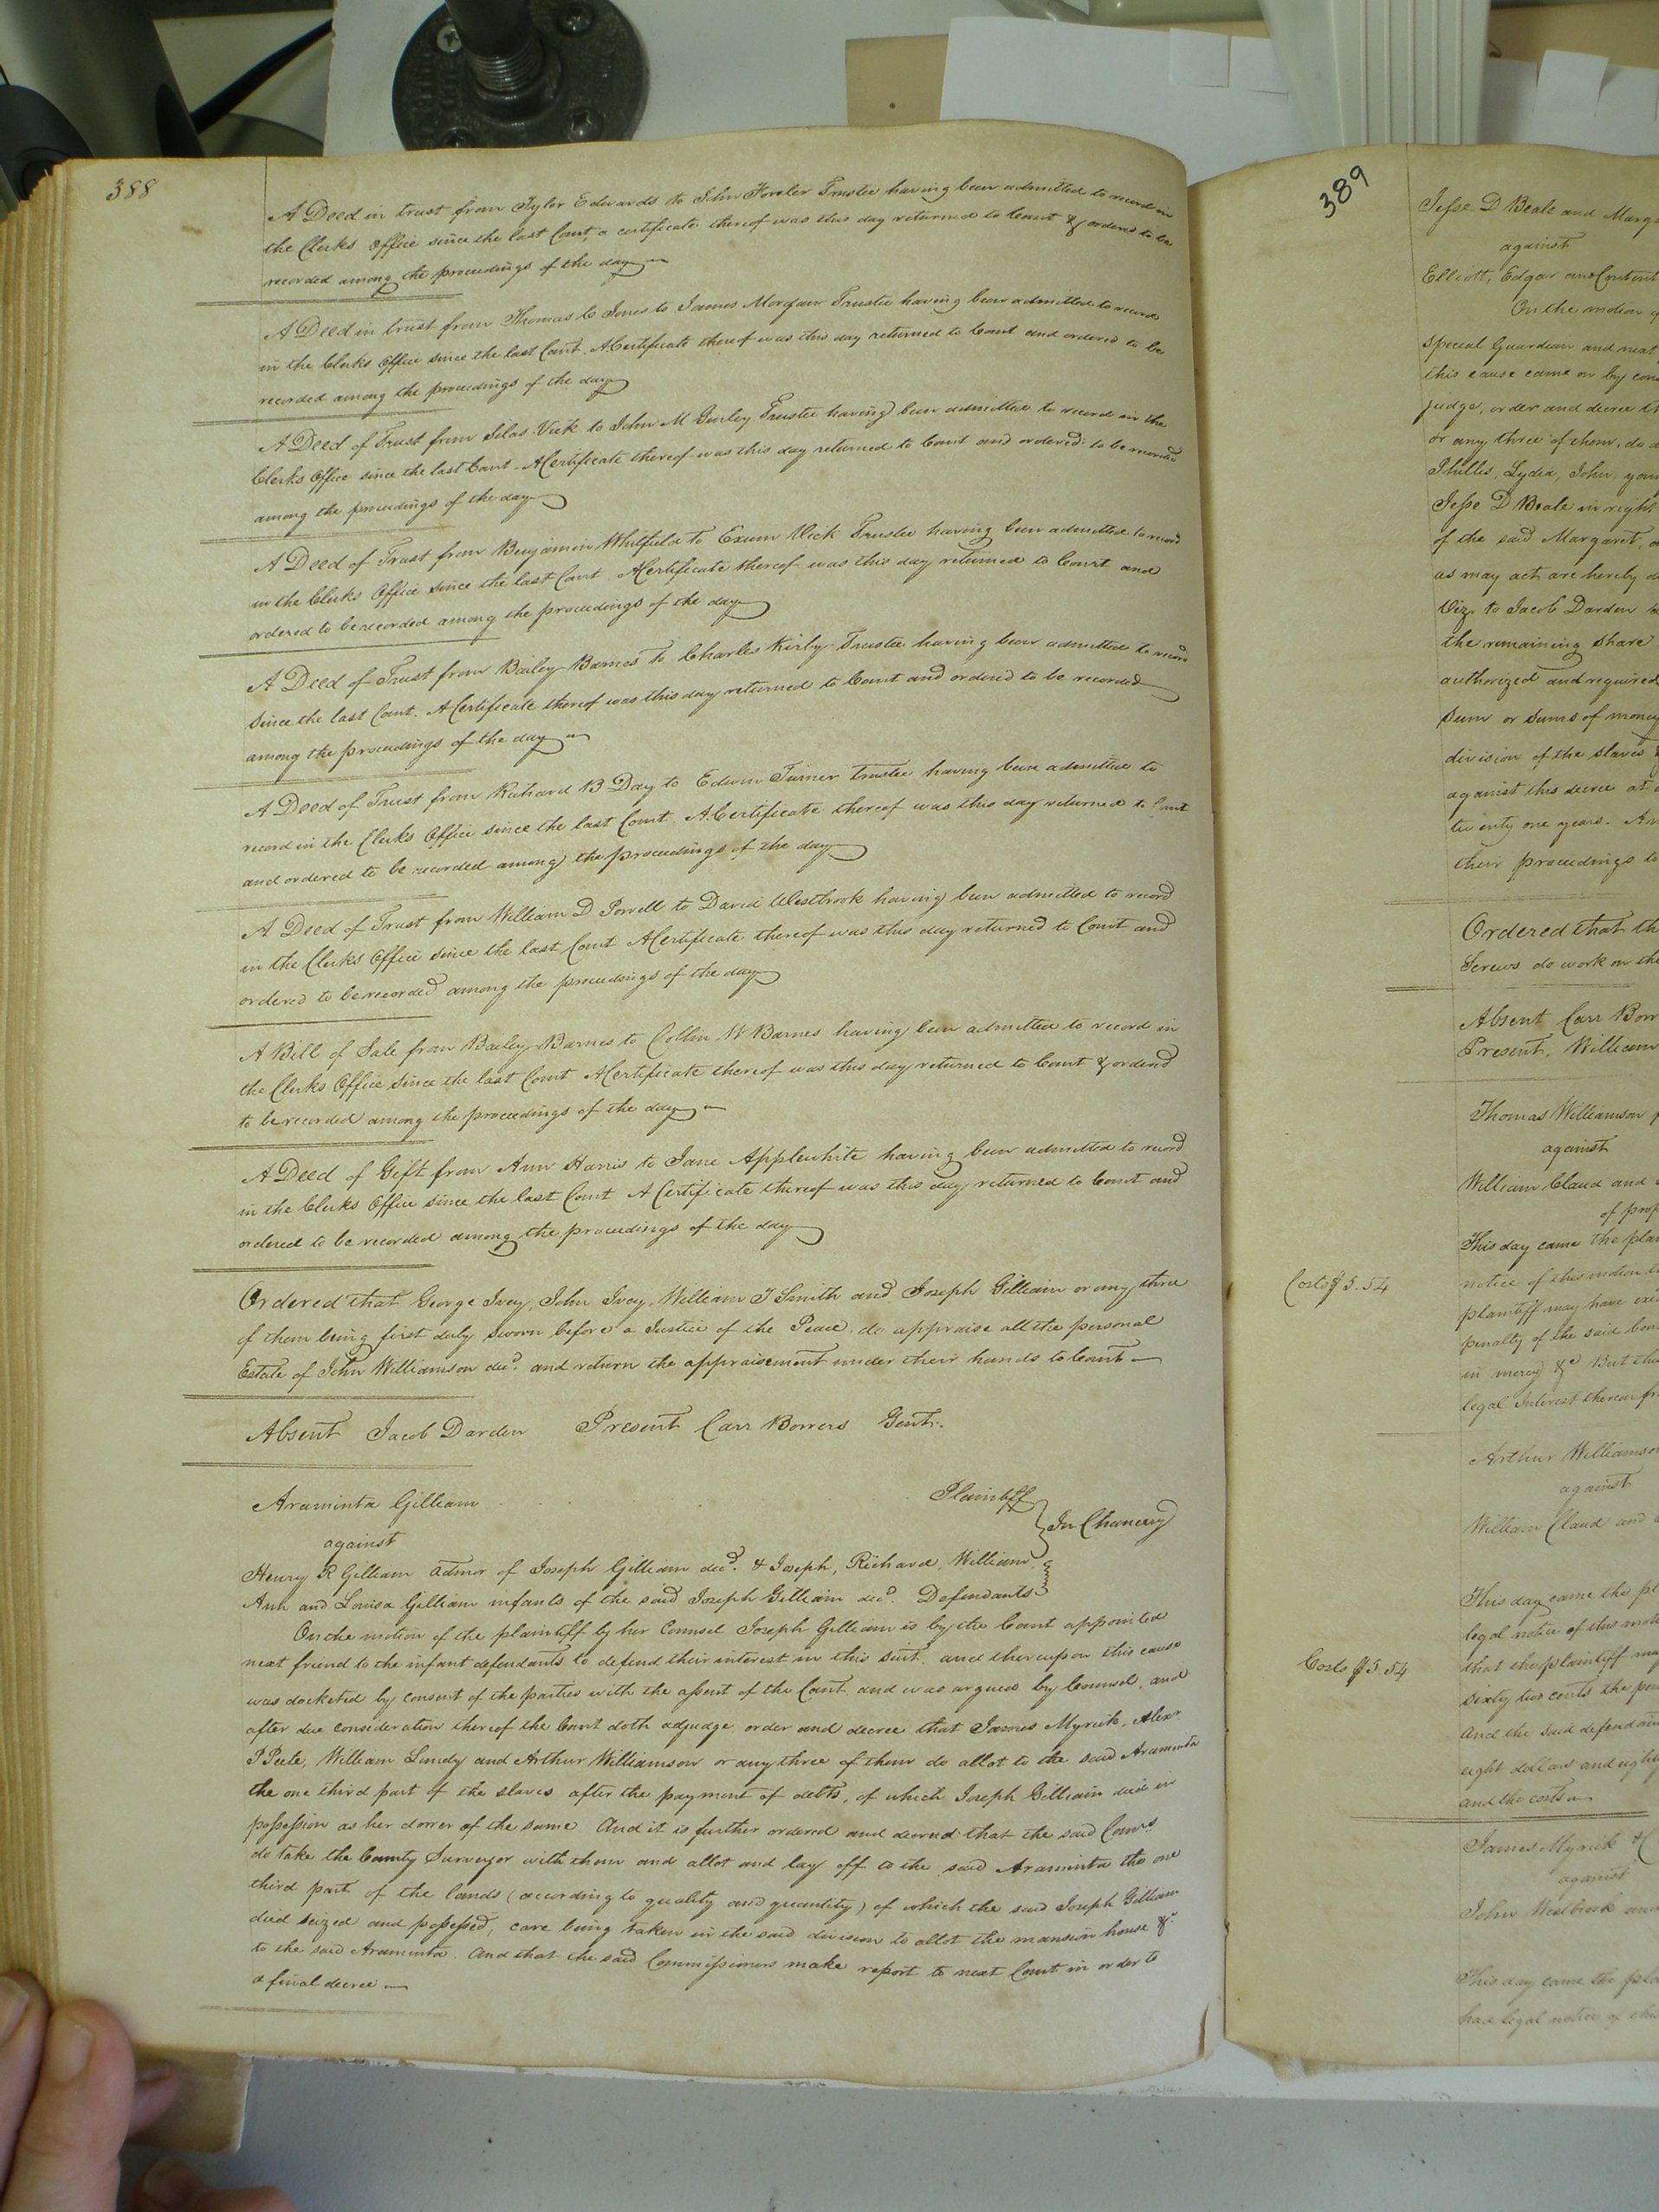 388
A Deed in trust from Tyler Edwards to John Fowler Trustee having been admitted to record in
the Clerks Office since the last Court, a certificate thereof was this day returned to Court & ordered to be
recorded among the proceedings of the day
A Deed in trust from Thomas C Jones to James Morgan Trustee having been admitted to record
in the Clerks Office since the last Court. A Certificate thereof was this day returned to Court and ordered to be
recorded among the proceedings of the day
A Deed of Trust from Silas Vick to John M Gurley Trustee having been admitted to record in the
Clerks Office since the last Court. A Certificate thereof was this day returned to Court and ordered to be recorded
among the proceedings of the day
A Deed of Trust from Benjamin Whitfield to Exum Vick Trustee having been admitted to record
in the Clerks Office since the last Court. A Certificate thereof was this day returned to Court and
ordered to be recorded among the proceedings of the day
A Deed of Trust from Bailey Barnes to Charles Kirby Trustee having been admitted to record
since the last Court. A Certificate thereof was this day returned to Court and ordered to be recorded
among the proceedings of the day
A Deed of Trust from Richard B Day to Edwin Turner trustee having been admitted to
record in the Clerks Office since the last Court A Certificate thereof was this day returned to Court
and ordered to be recorded among the proceedings of the day
A Deed of Trust from William D Powell to David Westbrook having been admitted to record
in the Clerks Office since the last Court A Certificate thereof was this day returned to Court and
ordered to be recorded among the proceedings of the day
A Bill of Sale from Bailey Barnes to Collin W Barnes having been admitted to record in
the Clerks Office since the last Court A Certificate thereof was this day returned to Court & ordered
to be recorded among the proceedings of the day
A Deed of Gift from Ann Harris to Jane Applewhite having been admitted to record
in the Clerks Office since the last Court A Certificate thereof was this day returned to Court and
ordered to be recorded among the proceedings of the day
Ordered that George Ivey, John Ivey, William J Smith and Joseph Gilliam or any three
of them being first duly sworn before a Justice of the Peace do appraise all the personal
Estate of John Williamson decd. and return the appraisement under their hands to Court
Absent Jacob Darden Present Carr Bowers Gent.
Araminta Gilliam Plaintiff
against In Chancery
Henry R Gilliam admor of Joseph Gilliam decd. & Joseph, Richard, William
Ann and Louisa Gilliam infants of the said Joseph Gilliam decd. Defendants
On the motion of the plaintiff by her Counsel Joseph Gilliam is by the Court appointed
next friend to the infant defendants to defend their interest in this suit. and thereupon this cause
was docketed by consent of the parties with the assent of the Court and was argued by Counsel, and
after due consideration thereof the Court doth adjudge, order and decree that James Myrick, Alexr
P Peete, William Lundy and Arthur Williamson or any three of them do allot to the said Araminta
the one third part of the slaves after the payment of debts, of which Joseph Gilliam died in
possession as her dower of the same And it is further ordered and decreed that the said Comrs
do take the County Surveyor with them and allot and lay off to the said Araminta the one
third part of the lands (according to quality and quantity) of which the said Joseph Gilliam
died seized and possessed, care being taken in the said division to allot the mansion house &c
to the said Araminta. And that the said Commissioners make report to next Court in order to
a final decree
389
Jesse D Beale and Marg
against
Elliott, Edgar and Content
On the motion
special Guardian and next
this cause came on by con
judge, order and decree th
or any three of them, do a
Phillis, Lydia, John, youn
Jesse D Beale in right
of the said Margaret,
as may act are hereby d
Viz. to Jacob Darden
the remaining share
authorized and required
sum or sums of money
division of the slaves
against this decree at
twenty one years. An
their proceedings to
Ordered that th
Screws do work on the
Absent Carr Bow
Present, William
Thomas Williamson
against
William Claud and
of prop
This day came the plai
Costs $5.54 notice of this motion
plaintiff may have exe
penalty of the said bon
in mercy &c But th
legal Interest thereon fr
Arthur Williamson
against
William Claud and
This day came the pl
legal notice of this moti
Costs $5.54 that the plaintiff may
sixty two cents the pen
And the said defendan
eight dollars and eight
and the costs
James Myrick
against
John Westbrook and
This day came the pla
had legal notice of this